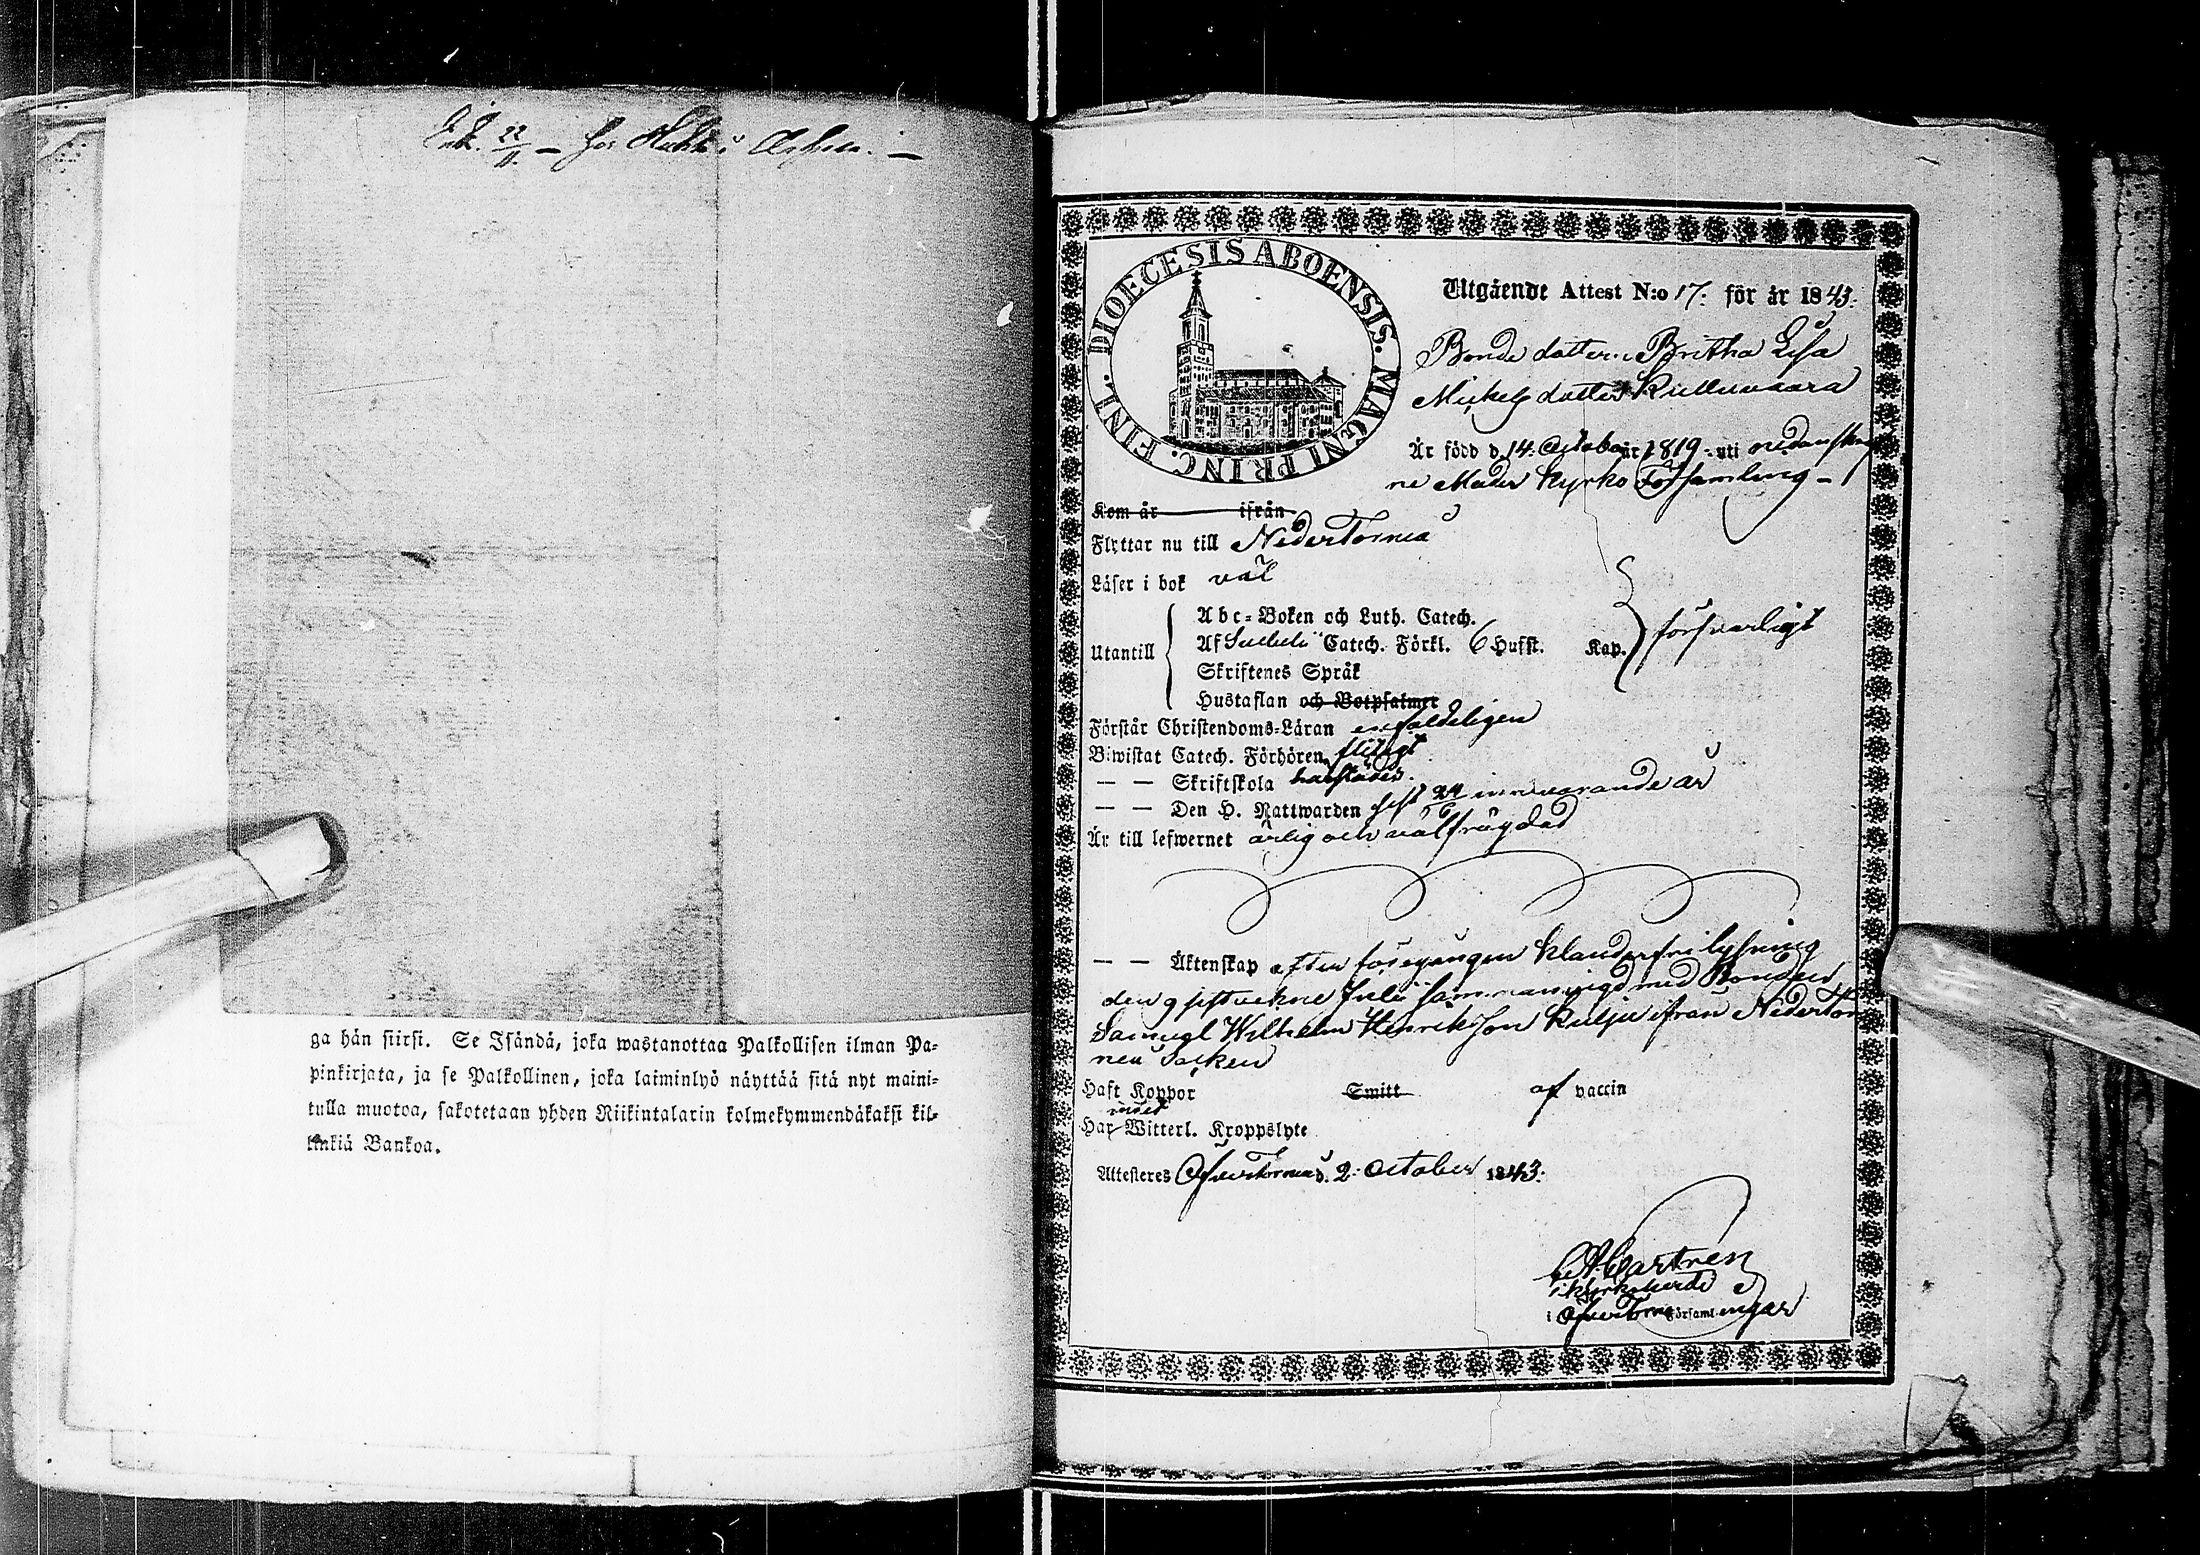 Ink. 22/11. — hos Hukk i
ga hän siirsi. Se Isändä, joka wastanottaa Palkollisen ilman Pa-
pinkirjata, ja se Palkollinen, joka laiminlyö näyttää sitä nyt maini-
tulla muotoa, sakotetaan yhden Riikintalarin kolmekymmendäkaksi kil-
linkiä Bankoa.
DIOECESIS ABOENSIS. MAGNI PRINC. FINL.
Utgående Attest N:o 17. för år 1843.
Bonde dottern Britha Lisa
Mickels dotter Kulluvaara
Är född d. 14. October år 1819. uti nedanskref
ne Moder kyrko Församling —
Kom år — ifrån
Flyttar nu till Neder Torneå
Läser i bok väl
Utantill
Abc-Boken och Luth. Catech.
Af Svebelii Catech. Förkl. 6 Hufst. Kap. försvarligt
Skriftenes Språk
Hustaflan och Botpsalmer
Förstår Christendoms-Läran enfaldeligen
Biwistat Catech. Förhören flitigt
— — Skriftskola härstädes.
— — Den H. Nattwarden sist 24/6 innevarande år
Är till lefwernet ärlig och välfrägdad
— — Äktenskap efter föregången klanderfri lysning
den 9 sistvekne Julii sammanvigd med Bonden
Samuel Wilhelm Henriksson Kulju ifrån Neder Tor
neå Socken
Haft Koppor Smitt af vaccin
intet
Har Witterl. Kroppslyte
Attesteres Öfver Torneå d. 2. October 1843.
C A Castrén
v. kyrkoherde
i Öfver Torneå Församlingar